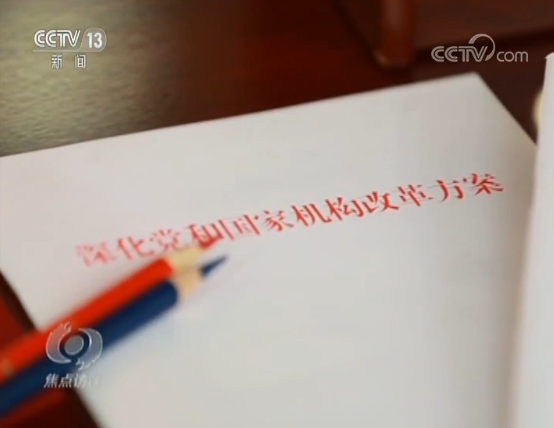 CCTV 13
新闻
CCTV.com
深化党和国家机构改革方案
焦点访谈